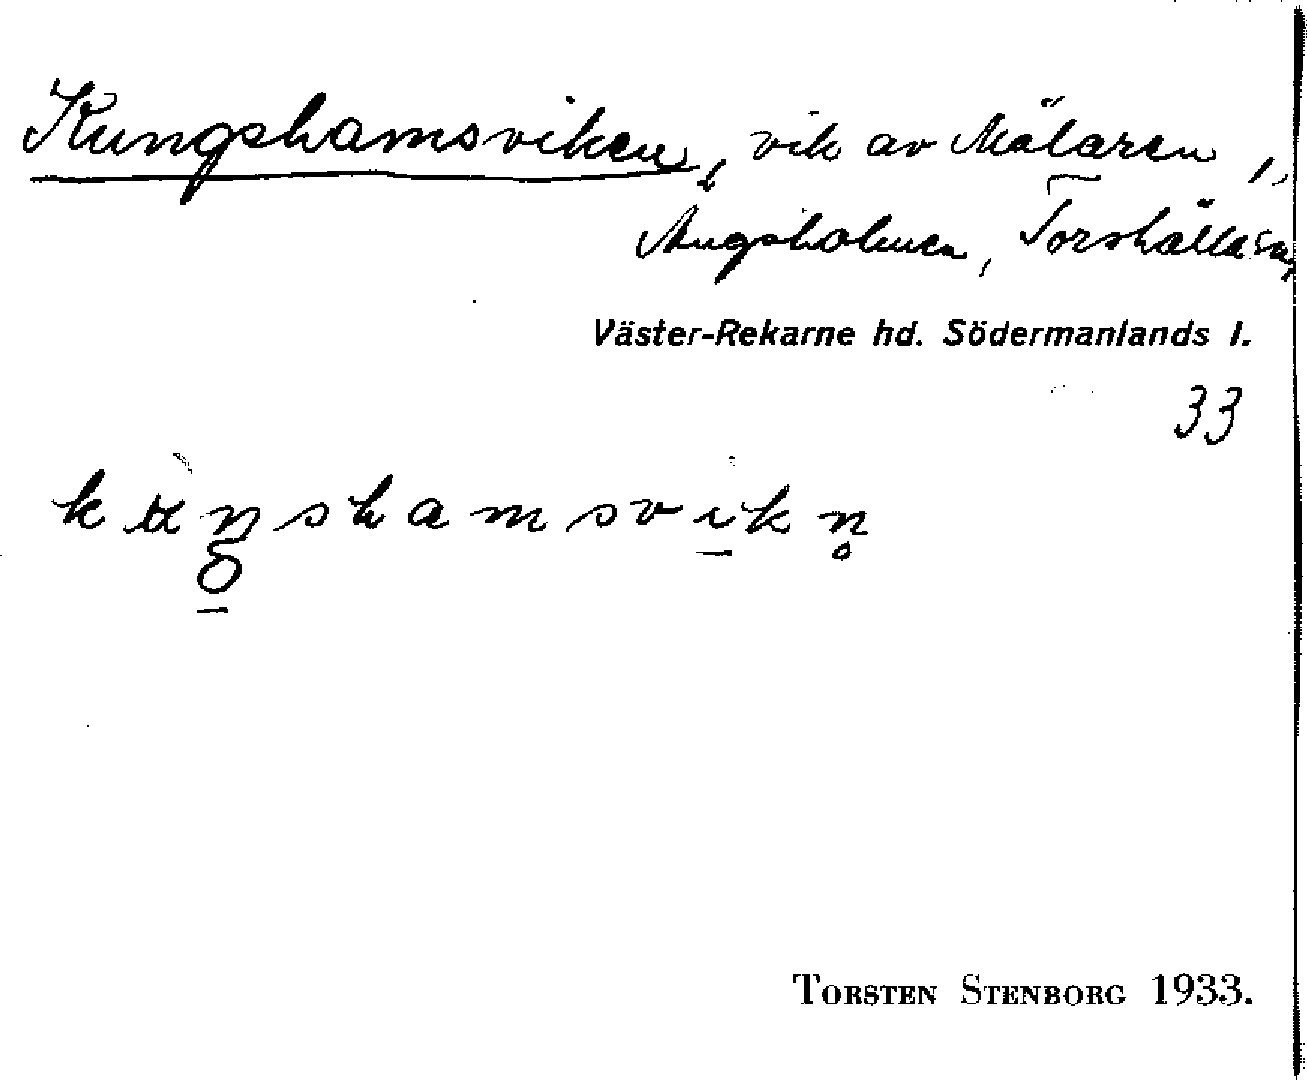 Kungshamsviken, vik av Mälaren,
Ängsholmen, Torshälla sn,
Väster-Rekarne hd. Södermanlands l.
33
TORSTEN STENBORG 1933.